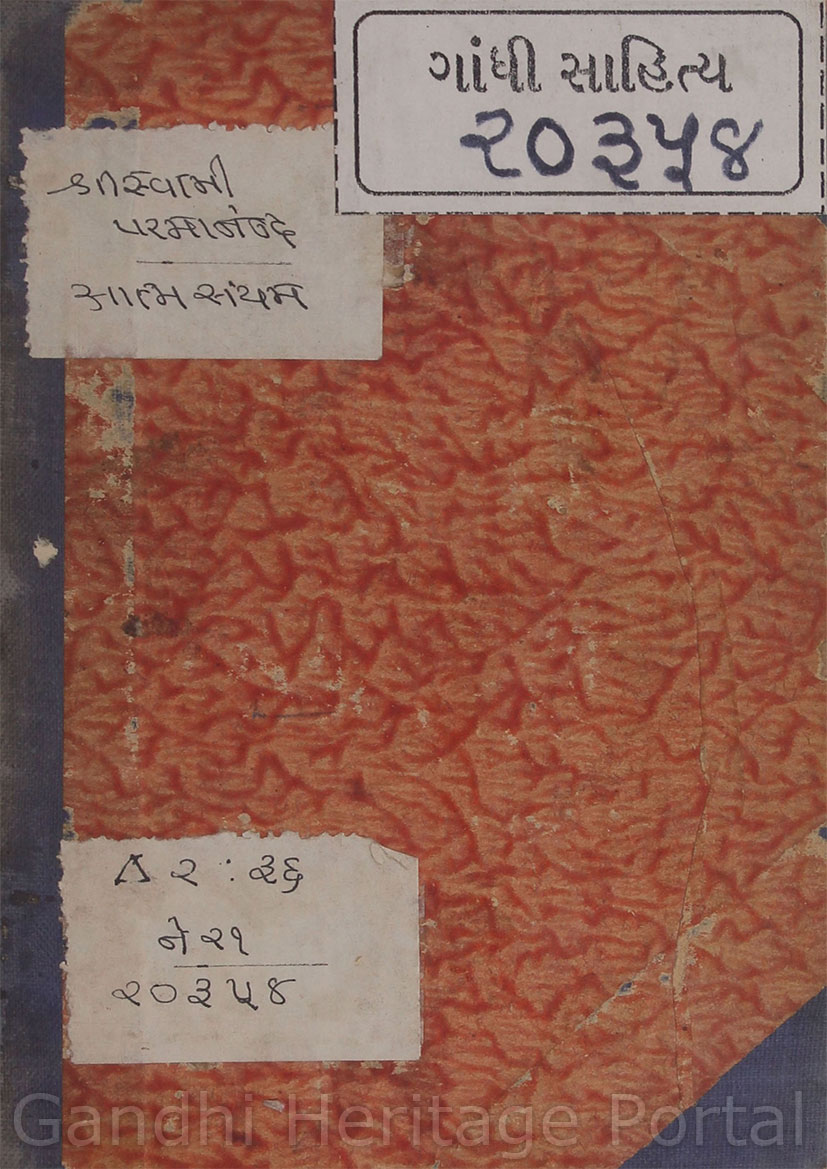 ગાંધી સાહિત્ય
૨૦૩૫૪
શ્રીસ્વામી
પરમાનંદ
આત્મ સંયમ
Δ ૨ : ૩૬
ને ૨૧
૨૦૩૫૪
Gandhi Heritage Portal